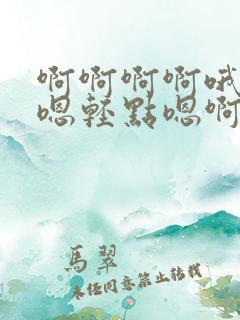 啊啊啊啊哦
嗯轻點嗯啊
馬翠
未经同意禁止转载